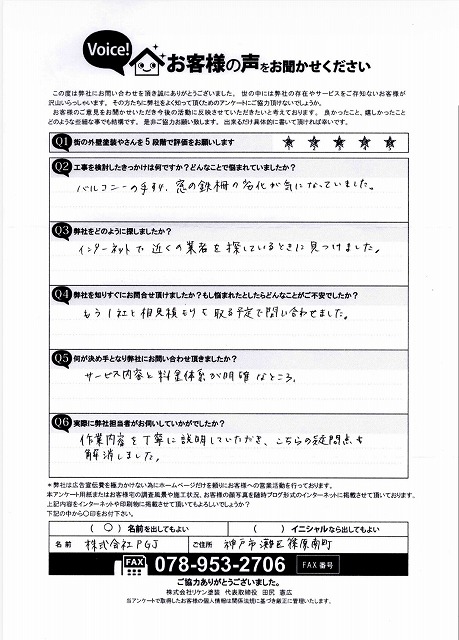 Voice! お客様の声をお聞かせください
この度は弊社にお問い合わせを頂き誠にありがとうございました。 世の中には弊社の存在やサービスをご存知ないお客様が
沢山いらっしゃいます。 その方たちに弊社をよく知って頂くためのアンケートにご協力頂けないでしょうか。
お客様のご意見をお聞かせいただき今後の活動に反映させていただきたいと考えております。 良かったこと、嬉しかったこと
どのような些細な事でも結構です。 是非ご協力お願い致します。 出来るだけ具体的に書いて頂ければ幸いです。
Q1 街の外壁塗装やさんを5段階で評価をお願いします ★ ★ ★ ★ ★
Q2 工事を検討したきっかけは何ですか?どんなことで悩まれていましたか?
バルコニーの手すり、窓の鉄柵の劣化が気になっていました。
Q3 弊社をどのように探しましたか?
インターネットで近くの業者を探しているときに見つけました。
Q4 弊社を知りすぐにお問合せ頂けましたか?もし悩まれたとしたらどんなことがご不安でしたか?
もう1社と相見積もりを取る予定で問い合わせました。
Q5 何が決め手となり弊社にお問い合わせ頂きましたか?
サービス内容と料金体系が明確なところ。
Q6 実際に弊社担当者がお伺いしていかがでしたか?
作業内容を丁寧に説明していただき、こちらの疑問点も
解消しました。
*弊社は広告宣伝費を極力かけない為にホームページだけを頼りにお客様への営業活動を行っております。
本アンケート用紙またはお客様宅の調査風景や施工状況、お客様の顔写真を随時ブログ形式のインターネットに掲載させて頂いております。
上記内容をインターネットや印刷物に掲載させて頂いてもよろしいでしょうか?
下記の中から○印をお付け下さい。
( ○ ) 名前を出してもよい ( ) イニシャルなら出してもよい
名前 株式会社PGJ ご住所 神戸市灘区篠原南町
FAX 078-953-2706 FAX番号
ご協力ありがとうございました。
株式会社リケン塗装 代表取締役 田尻 憲広
当アンケートで取得したお客様の個人情報は関係法規に基づき厳正に管理いたします。